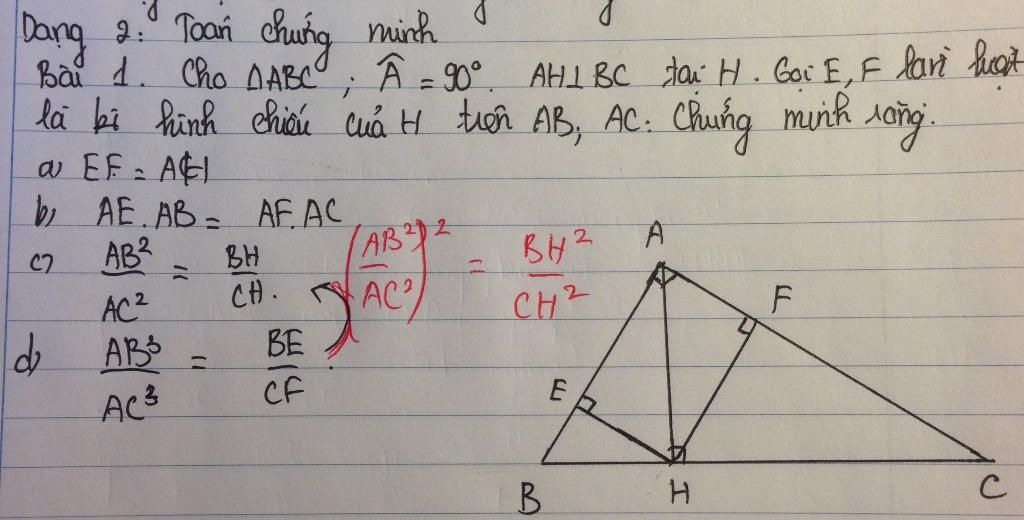 Dạng 2: Toán chứng minh
Bài 1. Cho ΔABC ; Â = 90°. AH⊥BC tại H. Gọi E, F lần lượt
là hình chiếu của H trên AB, AC. Chứng minh rằng.
a) EF = AH
b) AE.AB = AF.AC
c) AB²/AC² = BH/CH. (AB²/AC²)² = BH²/CH²
d) AB³/AC³ = BE/CF.
A
F
E
B H C